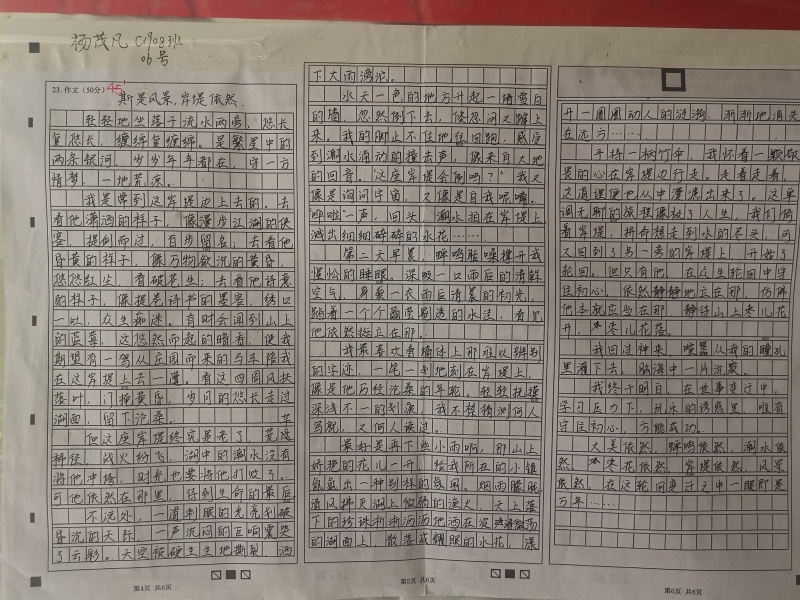 杨茂凡 C1908班
06号
23.作文（50分）45
斯是风景，岸堤依然
轻轻地坐落于流水两旁，悠长
复悠长，缠绵复缠绵。是繁星中的
两条银河，岁岁年年都在，守一方
情梦，一地荒凉。
我是常到这岸堤边上去的。去
看他潇洒的样子，像漫步江湖的侠
客，提剑而过，百步留名；去看他
昏黄的样子，像万物欲沉的黄昏，
悠悠红尘，看破苍生；去看他诗意
的样子，像提卷诗书的墨客，绣口
一吐，众生痴迷。有时会闻到山上
的蓝莓，这悠然而起的暗香，使我
期望有一驾从庄园而来的马车陪我
在这岸堤上去一遭。有这四周风扶
落叶，门掩黄昏，岁月的悠长走过
湖面，留下沧桑。
但这座岸堤终究是老了，荒废
秽役，战火纷飞，湖中的潮水没有
将他冲垮，时光也要将他打败了。
可他依然在那里，得到生命的最后
不远处，一道刺眼的光亮划破
昏沉的天际，一声沉闷的巨响震哭
了云彩。天突被硬生生地撕裂，洒
第4页 共6页
下大雨滂沱。
水天一色的地方升起一博雪白
的墙，忽然倒下去，倏忽间又蹿上
来。我的脚止不住地往回跑，感受
到潮水涌动的撞击声，像来自大地
的回音。“这座岸堤会倒吗？”我又
像是询问宇宙，又像是自我呢喃。
“哗啦”一声，回头，潮水拍在岸堤上
溅出细细碎碎的水花……
第二天早晨，蝉鸣聒噪撑开我
惺忪的睡眼，深吸一口雨后的清鲜
空气，身乘一衣雨后清晨的初光，
踏着一个个晶莹剔透的水洼，看见
他依然挺立在那。
我最喜欢看墙体上那难以辨别
的字迹，一笔一划地刻在岸堤上，
像是他历经沧桑的年轮。轻轻抚摸
深浅不一的刻痕，我不禁猜测何人
写就，又何人读过。
最好是再下些小雨啊，那山上
娇艳的花儿一开，给我所在的小镇
氤氲出一种别样的氛围。烟雨朦胧，
清风拂灭湖上微弱的渔火，天上落
下的珍珠淅淅沥沥地洒在波涛微荡
的湖面上，散落成耀眼的水花，漾
第5页 共6页
开一圈圈动人的涟漪，渐渐地消失
在远方……
手持一柄竹伞，我怀着一颗
是的心在岸堤边行走。走着走着，
这道理便也从中漫透出来了。这单
调无聊的旅程像极了人生，我们倚
着岸堤，拼命想走到水的尽头，可
又回到了另一旁的岸堤上，开始了
轮回。但只有他，在众生轮回中守
住初心，依然静静地立在那，仿佛
他本就应当在那，静待山上枣儿花
开，枣儿花落。
我回过神来，喧嚣从我的瞳孔
里滴下去，脑海中一片沉寂。
我终于明白，在世事变迁中，
学习压力下，玩乐的诱惑里，唯有
守住初心，方能成功。
大美依然，蝉鸣依然，潮水依
然，枣花依然，岸堤依然，风景
依然，在这轮回变迁之中一眼即是
万年……
第6页 共6页